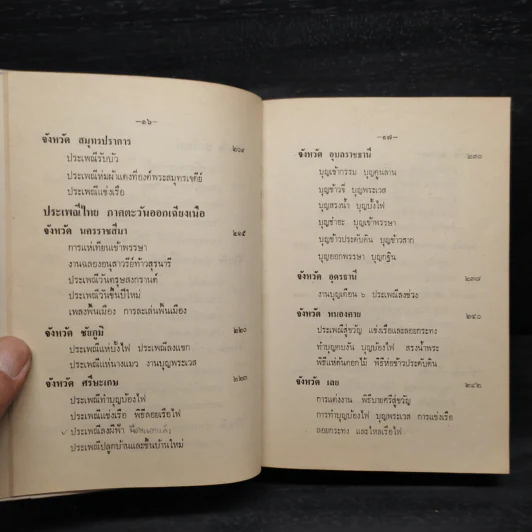 —๑๖—
จังหวัด สมุทรปราการ ๒๐๙
ประเพณีรับบัว
ประเพณีห่มผ้าแดงที่องค์พระสมุทรเจดีย์
ประเพณีแข่งเรือ
ประเพณีไทย ภาคตะวันออกเฉียงเหนือ
จังหวัด นครราชสีมา ๒๑๕
การแห่เทียนเข้าพรรษา
งานฉลองอนุสาวรีย์ท้าวสุรนารี
ประเพณีวันตรุษสงกรานต์
ประเพณีวันขึ้นปีใหม่
เพลงพื้นเมือง การละเล่นพื้นเมือง
จังหวัด ชัยภูมิ ๒๒๐
ประเพณีแห่บั้งไฟ ประเพณีลงแขก
ประเพณีแห่นางแมว งานบุญพระเวส
จังหวัด ศรีษะเกษ ๒๒๓
ประเพณีทำบุญบ้องไฟ
ประเพณีแข่งเรือ พิธีลอยเรือไฟ
ประเพณีลงผีฟ้า
ประเพณีปลูกบ้านและขึ้นบ้านใหม่
—๑๗—
จังหวัด อุบลราชธานี ๒๓๐
บุญเข้ากรรม บุญคูนลาน
บุญข้าวจี่ บุญพระเวส
บุญสรงน้ำ บุญบั้งไฟ
บุญชำฮะ บุญเข้าพรรษา
บุญข้าวประดับดิน บุญข้าวสาก
บุญออกพรรษา บุญกฐิน
จังหวัด อุดรธานี ๒๓๗
งานบุญเดือน ๖ ประเพณีลงข่วง
จังหวัด หนองคาย ๒๔๐
ประเพณีสู่ขวัญ แข่งเรือและลอยกระทง
ทำบุญคบงัน บุญบ้องไฟ สรงน้ำพระ
พิธีแห่ต้นดอกไม้ พิธีห่อข้าวประดับดิน
จังหวัด เลย ๒๔๒
การแต่งงาน พิธีบายศรีสู่ขวัญ
การทำบุญบ้องไฟ บุญพระเวส การแข่งเรือ
ลอยกระทง และไหลเรือไฟ